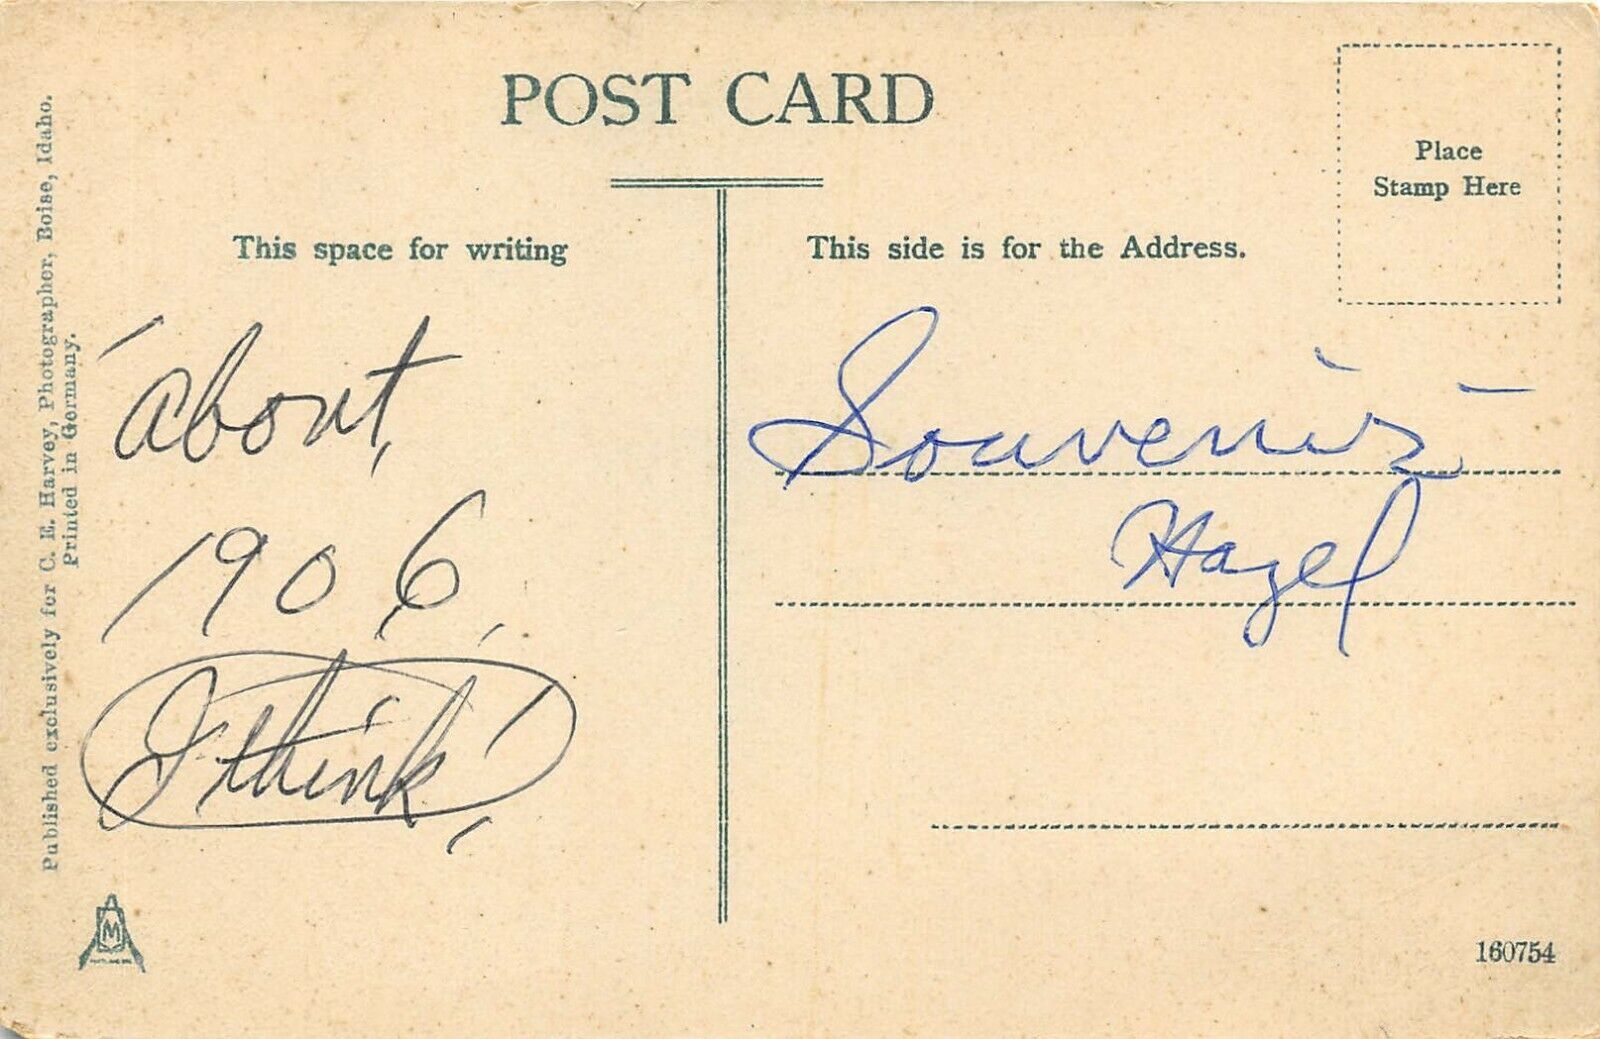 POST CARD
Place
Stamp Here
This space for writing
This side is for the Address.
about,
1906,
I think!
Souvenir
Hazel
Published exclusively for C. E. Harvey, Photographer, Boise, Idaho.
Printed in Germany.
M
160754